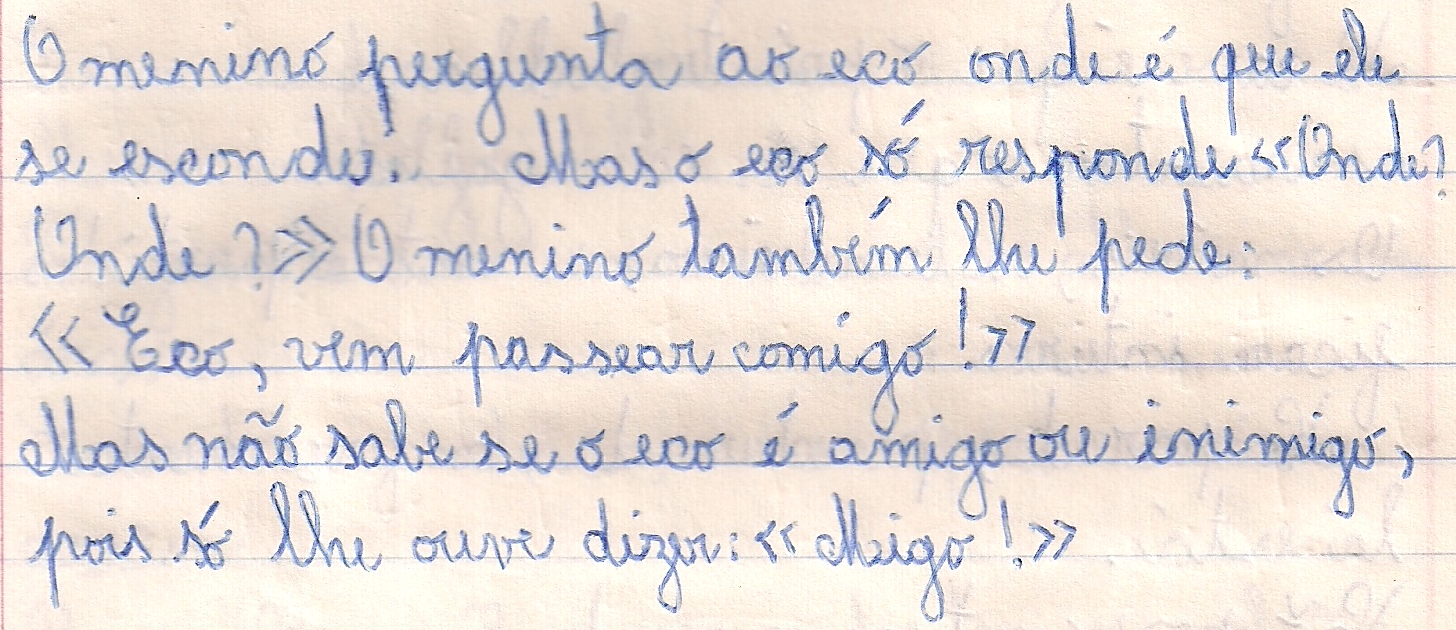 O menino pergunta ao eco onde é que ele
se esconde. Mas o eco só responde «Onde?
Onde?» O menino também lhe pede:
«Eco, vem passear comigo!»
Mas não sabe se o eco é amigo ou inimigo,
pois só lhe ouve dizer: «Migo!»